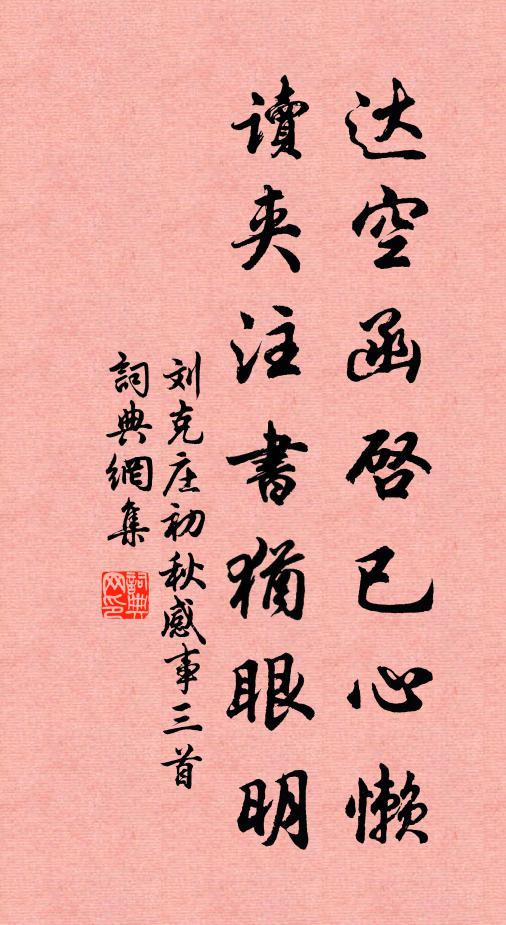 达空函啓已心懒
讀夹注書犹眼明
刘克庄初秋感事三首
詞典網集
詞典网印